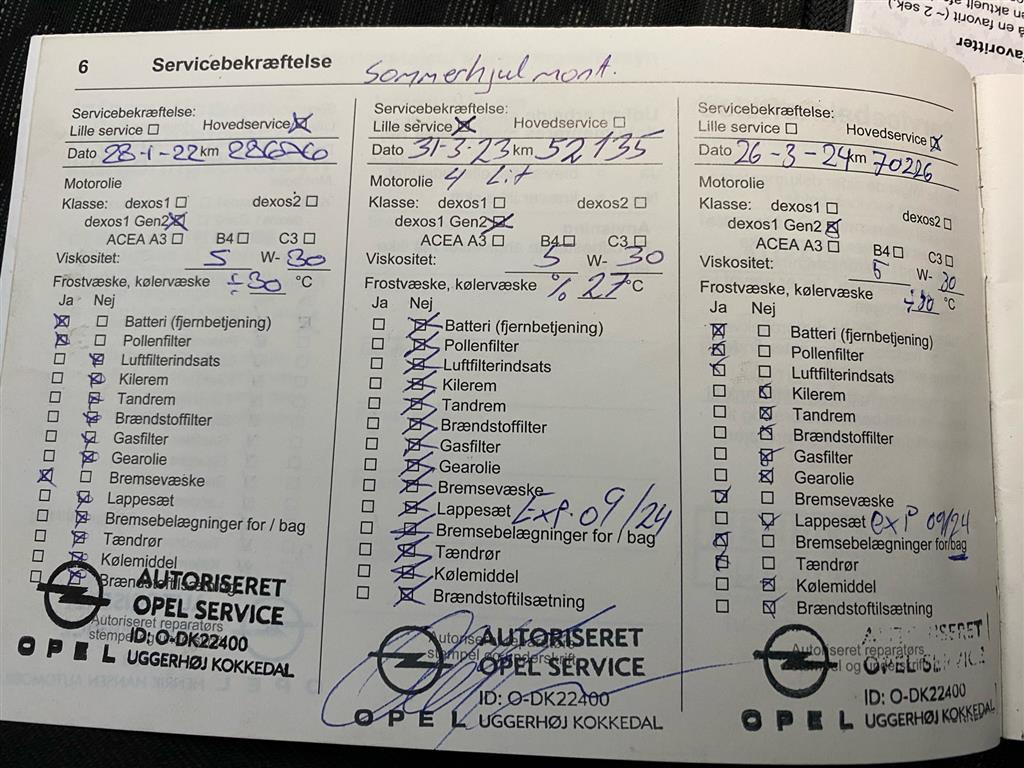 6 Servicebekræftelse Sommerhjul mont.
Servicebekræftelse:
Lille service Hovedservice
Dato 28-1-22 km
Motorolie
Klasse: dexos1 dexos2
dexos1 Gen2
ACEA A3 B4 C3
Viskositet: 5 W- 30
Frostvæske, kølervæske ÷30 °C
Ja Nej
Batteri (fjernbetjening)
Pollenfilter
Luftfilterindsats
Kilerem
Tandrem
Brændstoffilter
Gasfilter
Gearolie
Bremsevæske
Lappesæt
Bremsebelægninger for / bag
Tændrør
Kølemiddel
Brændstoftilsætning
Autoriseret reparatørs
stempel og
AUTORISERET
OPEL SERVICE
ID: O-DK22400
OPEL UGGERHØJ KOKKEDAL
Servicebekræftelse:
Lille service Hovedservice
Dato 31-3-23 km 52135
Motorolie 4 Lit
Klasse: dexos1 dexos2
dexos1 Gen2
ACEA A3 B4 C3
Viskositet: 5 W- 30
Frostvæske, kølervæske % 27 °C
Ja Nej
Batteri (fjernbetjening)
Pollenfilter
Luftfilterindsats
Kilerem
Tandrem
Brændstoffilter
Gasfilter
Gearolie
Bremsevæske
Lappesæt Exp. 09/24
Bremsebelægninger for / bag
Tændrør
Kølemiddel
Brændstoftilsætning
Autoriseret reparatørs
stempel og underskrift
AUTORISERET
OPEL SERVICE
ID: O-DK22400
OPEL UGGERHØJ KOKKEDAL
Servicebekræftelse:
Lille service Hovedservice
Dato 26-3-24 km 70226
Motorolie
Klasse: dexos1 dexos2
dexos1 Gen2
ACEA A3 B4 C3
Viskositet: 5 W- 30
Frostvæske, kølervæske ÷30 °C
Ja Nej
Batteri (fjernbetjening)
Pollenfilter
Luftfilterindsats
Kilerem
Tandrem
Brændstoffilter
Gasfilter
Gearolie
Bremsevæske
Lappesæt exp 09/24
Bremsebelægninger for/bag
Tændrør
Kølemiddel
Brændstoftilsætning
Autoriseret reparatørs
stempel og underskrift
AUTORISERET
OPEL SERVICE
ID: O-DK22400
OPEL UGGERHØJ KOKKEDAL
en favorit (~ 2 sek.)